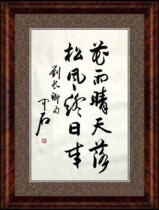 花雨晴天落
松風終日来
劉長卿句
中石